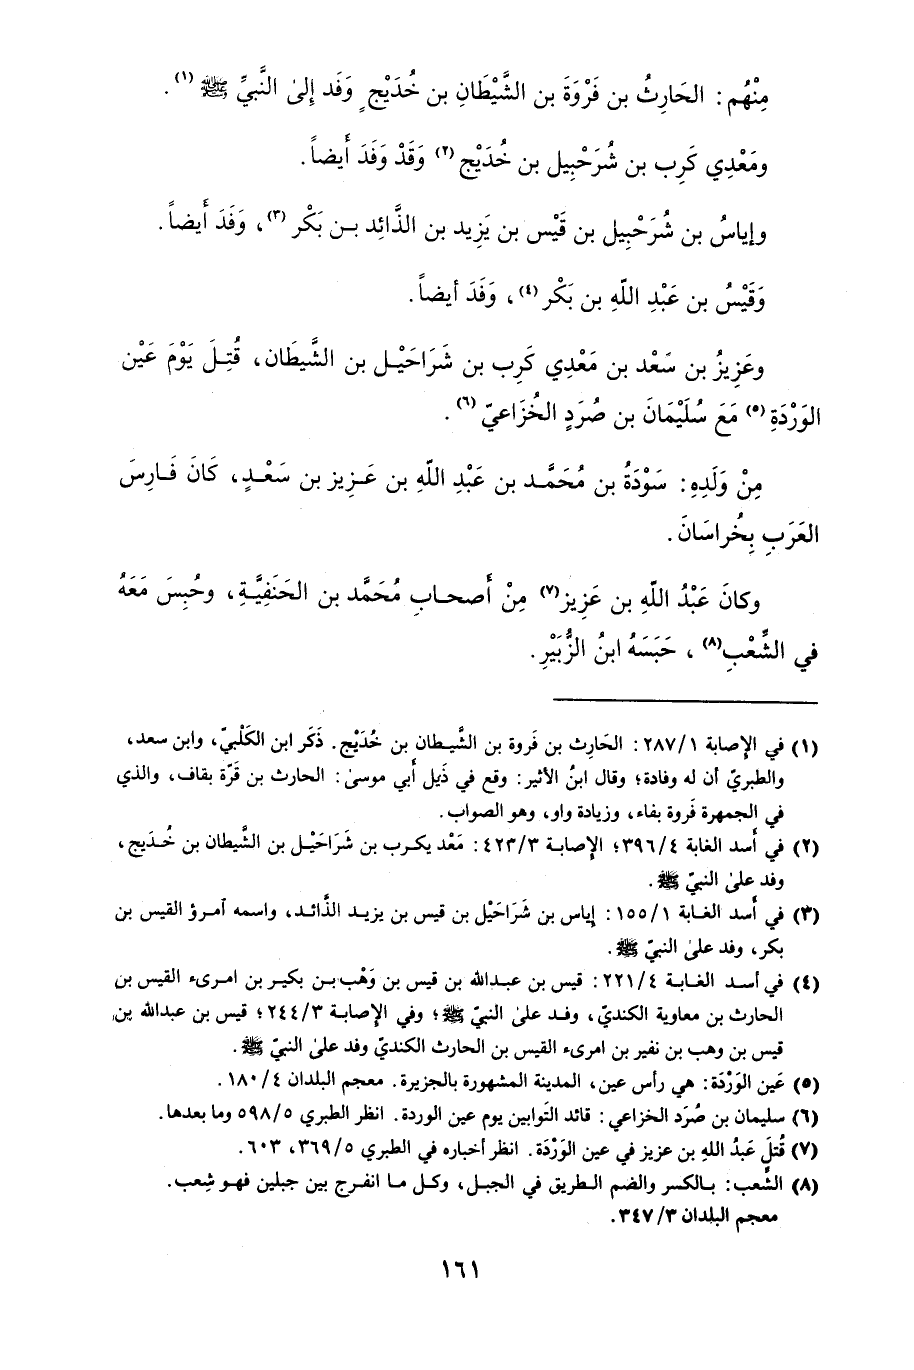 مِنْهُم: الحَارِثُ بن فَرْوَةَ بن الشَّيْطَانِ بن خُدَيْج ٍ وَفَد إِلىٰ النَّبيِّ ﷺ (١).
ومَعْدِي كَرِب بن شُرَحْبِيل بن خُدَيْج (٢) وَقَدْ وَفَدَ أَيضاً.
وإياسُ بن شُرَحْبِيل بن قَيْس بن يَزِيد بن الذَّائِد بـن بَكْر (٣)، وَفَدَ أَيضاً.
وَقَيْسُ بن عَبْدِ اللّهِ بن بَكْر (٤)، وَفَدَ أيضاً.
وعَزِيزُ بن سَعْد بن مَعْدِي كَرِب بن شَرَاحَيْـل بن الشَّيطَان، قُتِـلَ يَوْمَ عَيْن
الوَرْدَةِ (٥) مَعَ سُلَيْمَانَ بن صُرَدٍ الخُزَاعيّ (٦).
مِنْ وَلَدِهِ: سَوْدَةُ بن مُحَمَّـد بن عَبْدِ اللّهِ بن عَـزِيز بن سَعْـدٍ، كَانَ فَـارِسَ
العَرَبِ بِخُراسَانَ.
وكانَ عَبْدُ اللّهِ بن عَزِيز(٧) مِنْ أَصحـابِ مُحَمَّد بن الحَنَفِيَّـةِ، وحُبِسَ مَعَهُ
في الشِّعْبِ(٨)، حَبَسَهُ ابنُ الزُّبَيْرِ.
(١) في الإصابة ٢٨٧/١: الحَارِث بن فَروة بن الشَّيطان بن خُدَيْج. ذَكَر ابن الكَلْبيّ، وابن سعد،
والطبريّ أن له وفادة؛ وقال ابنُ الأثير: وقع في ذَيل أبي موسىٰ: الحارث بن قَرّة بقاف، والذي
في الجمهرة فَروة بفاء، وزيادة واو، وهو الصواب.
(٢) في أَسد الغابة ٣٩٦/٤؛ الإصابة ٤٢٣/٣: مَعْد يكـرب بن شَرَاحَيْـل بن الشَّيطان بن خُـديج،
وفد علىٰ النبيّ ﷺ.
(٣) في أَسد الغـابة ١٥٥/١: إياس بن شَرَاحَيْل بن قيس بن يزيـد الذَّائـد، واسمه آمرؤ القيس بن
بكر، وفد علىٰ النبيّ ﷺ.
(٤) في أسـد الغـابـة ٢٢١/٤: قيس بن عبـدالله بن قيس بن وَهْب بـن بكيـر بن امرىء القيس بن
الحارث بن معاوية الكنديّ، وفـد علىٰ النبيّ ﷺ؛ وفي الإصابـة ٢٤٤/٣؛ قيس بن عبدالله بن
قيس بن وهب بن نفير بن امرىء القيس بن الحارث الكنديّ وفد علىٰ النبيّ ﷺ.
(٥) عَين الوَرْدَة: هي رأس عين، المدينة المشهورة بالجزيرة. معجم البلدان ١٨٠/٤.
(٦) سليمان بن صُرَد الخزاعي: قائد التَوابين يوم عين الوردة. انظر الطبري ٥٩٨/٥ وما بعدها.
(٧) قُتلَ عَبدُ اللهِ بن عزيز في عين الوَرْدَة. انظر أخباره في الطبري ٣٦٩/٥، ٦٠٣.
(٨) الشِّعب: بـالكسر والضم الـطريق في الجبل، وكـل مـا انفـرج بين جبلين فهـو شِعب.
معجم البلدان ٣٤٧/٣.
١٦١